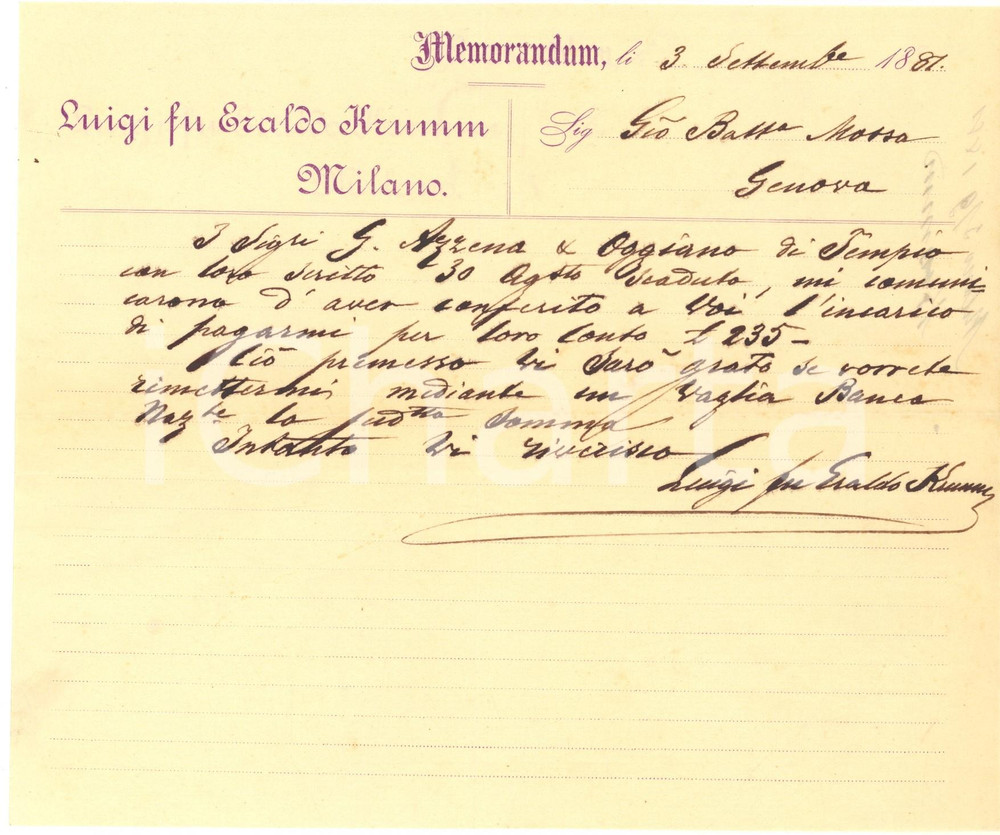 Memorandum, li 3 Settembe 1881.
Luigi fu Eraldo Krumm
Milano.
Sig Giō Batta Mossa
Genova
I Sigri G. Azzena & Oggiano di Tempio
con loro scritto 30 Agsto scaduto, mi comuni
carono d'aver conferito a Voi l'incarico
di pagarmi per loro conto £ 235 –
Ciō premesso Vi sarō grato se vorrete
rimettermi mediante un Vaglia Banca
Nazle la sudtta somma
Intanto Vi riverisco
Luigi fu Eraldo Krumm
iCharta